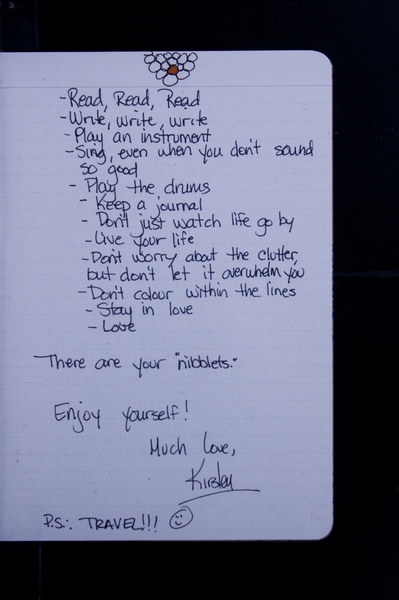 - Read, Read, Read
- Write, write, write
- Play an instrument
- Sing, even when you don't sound
so good
- Play the drums
- Keep a journal
- Don't just watch life go by
- Live your life
- Don't worry about the clutter,
but don't let it overwhelm you
- Don't colour within the lines
- Stay in love
- Love
There are your "nibblets."
Enjoy yourself!
Much love,
Kirsley
P.S.: TRAVEL!!! ☺